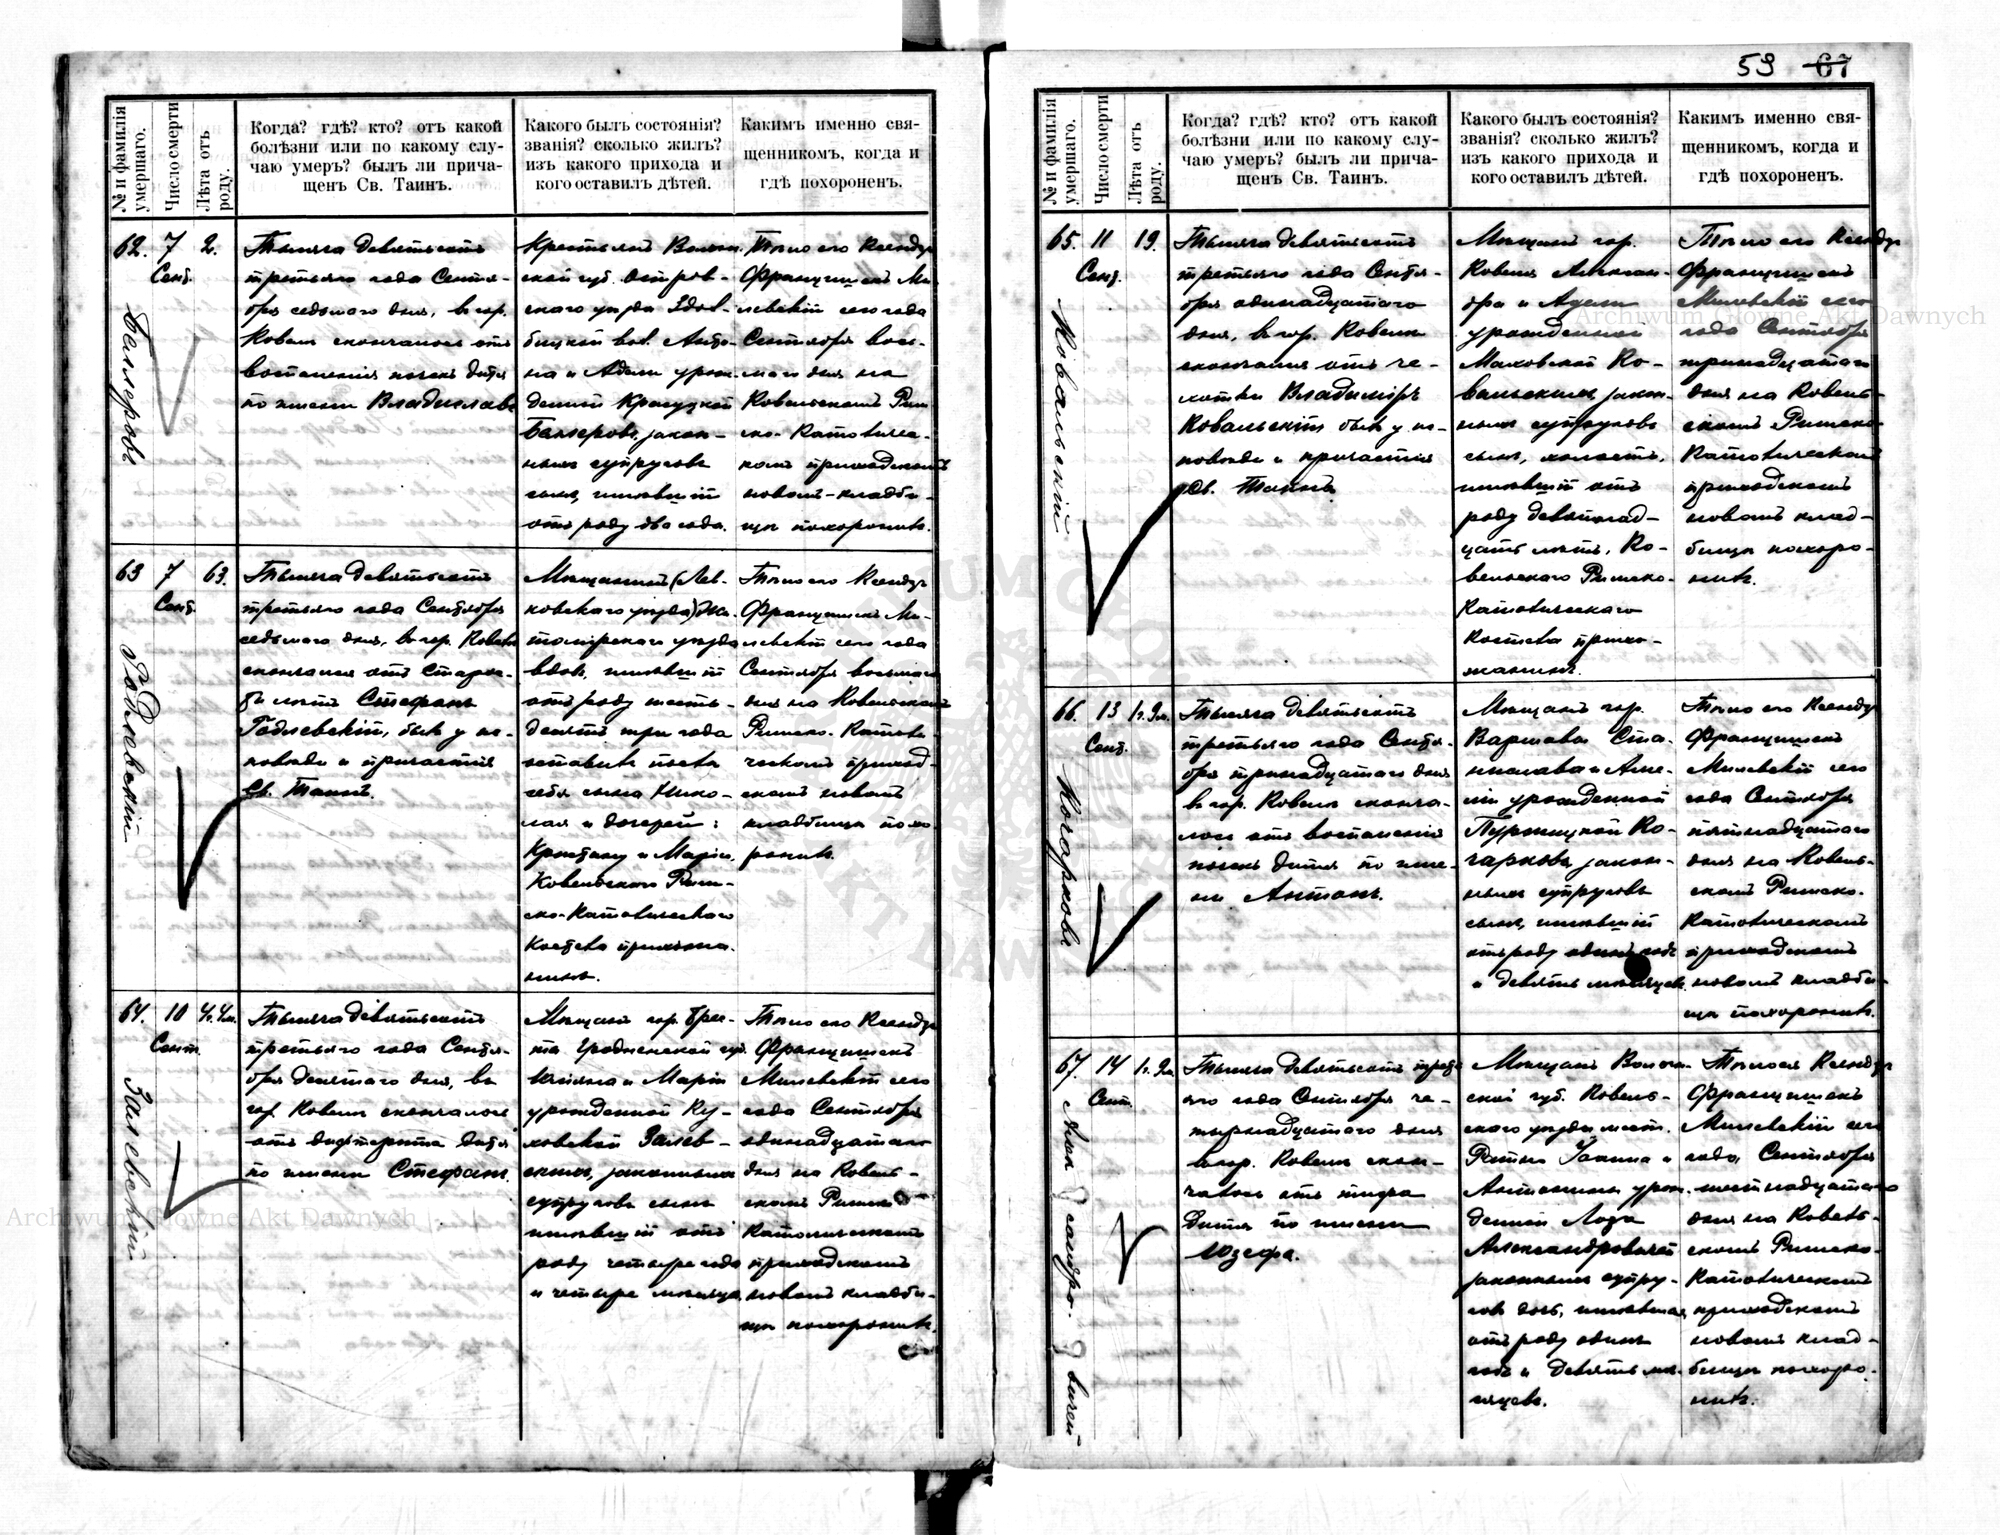 59 67
№ и фамилія умершаго.
Число смерти
Лѣта отъ роду.
Когда? гдѣ? кто? отъ какой
болѣзни или по какому слу-
чаю умеръ? былъ ли прича-
щенъ Св. Таинъ.
Какого былъ состоянія?
званія? сколько жилъ?
изъ какого прихода и
кого оставилъ дѣтей.
Какимъ именно свя-
щенникомъ, когда и
гдѣ похороненъ.
62. 7 Сент. 2.
Беллеровъ
Тысяча девятьсотъ
третьяго года Сентя-
бря седьмого дня, въ гор.
Ковелѣ скончалось отъ
воспаленія почекъ дитя
по имени Владиславъ
Крестьянъ Волын-
ской губ. Остров-
скаго уѣзда Здол-
бицкой вол. Анто-
на и Адели урож-
денной
законн-
ныхъ супруговъ
сынъ, имѣвшій
отъ роду два года.
Тѣло его Ксендзъ
Францишекъ Ми-
левскій сего года
Сентября вось-
маго дня на
Ковельскомъ Рим-
ско-Католичес-
комъ приходскомъ
новомъ кладби-
щѣ похоронилъ.
63 7 Сент. 63.
Годлевскій
Тысяча девятьсотъ
третьяго года Сентября
седьмого дня, въ гор. Ковелѣ
скончался отъ старос-
ти лѣтъ Стефанъ
Годлевскій, былъ у ис-
повѣди и причастія
Св. Таинъ.
Мѣщанинъ
Жи-
томірскаго уѣзда
вдовъ, имѣвшій
отъ роду шесть-
десятъ три года
оставилъ послѣ
себя сына Нико-
лая и дочерей:
Кристину и Марію,
Ковельскаго Рим-
ско-Католическаго
Костела прихожа-
нинъ.
Тѣло его Ксендзъ
Францишекъ Ми-
левскій сего года
Сентября восьмаго
дня на Ковельскомъ
Римско-Католи-
ческомъ приход-
скомъ новомъ
кладбищѣ похо-
ронилъ.
64. 10 Сент. 4г. 4м.
Залевскій
Тысяча девятьсотъ
третьяго года Сентя-
бря десятаго дня, въ
гор. Ковелѣ скончалось
отъ дифтерита дитя
по имени Стефанъ.
Мѣщанъ гор. Брес-
та Гродненской губ.
и Маріи
урожденной Ку-
ховской Залев-
скихъ, законныхъ
супруговъ сынъ
имѣвшій отъ
роду четыре года
и четыре мѣсяца.
Тѣло его Ксендзъ
Францишекъ
Милевскій сего
года Сентября
одинадцатаго
дня на Ковель-
скомъ Римско-
Католическомъ
приходскомъ
новомъ кладби-
щѣ похоронилъ.
№ и фамилія умершаго.
Число смерти
Лѣта отъ роду.
Когда? гдѣ? кто? отъ какой
болѣзни или по какому слу-
чаю умеръ? былъ ли прича-
щенъ Св. Таинъ.
Какого былъ состоянія?
званія? сколько жилъ?
изъ какого прихода и
кого оставилъ дѣтей.
Какимъ именно свя-
щенникомъ, когда и
гдѣ похороненъ.
65. 11 Сент. 19.
Ковальскій
Тысяча девятьсотъ
третьяго года Сентя-
бря одинадцатаго
дня, въ гор. Ковелѣ
скончался отъ ча-
хотки Владиміръ
Ковальскій былъ у ис-
повѣди и причастія
Св. Таинъ.
Мѣщанъ гор.
Ковеля Алексан-
дра и Адели
урожденной
Маховской Ко-
вальскихъ закон-
ныхъ супруговъ
сынъ, холостъ,
имѣвшій отъ
роду девятнад-
цать лѣтъ, Ко-
вельскаго Римско-
Католическаго
Костела прихо-
жанинъ.
Тѣло его Ксендзъ
Францишекъ
Милевскій сего
года Сентября
тринадцатаго
дня на Ковель-
скомъ Римско-
Католическомъ
приходскомъ
новомъ клад-
бищѣ похоро-
нилъ.
66. 13 Сент. 1г. 9м.
Кочарковъ
Тысяча девятьсотъ
третьяго года Сентя-
бря тринадцатаго дня
въ гор. Ковелѣ сконча-
лось отъ воспаленія
почекъ дитя по име-
ни Антонъ.
Мѣщанъ гор.
Варшавы Ста-
нислава и Аме-
ліи урожденной
Ко-
чарковъ, закон-
ныхъ супруговъ
сынъ, имѣвшій
отъ роду одинъ годъ
и девять мѣсяцевъ.
Тѣло его Ксендзъ
Францишекъ
Милевскій сего
года Сентября
пятнадцатаго
дня на Ковель-
скомъ Римско-
Католическомъ
приходскомъ
новомъ кладби-
щѣ похоронилъ.
67. 14 Сент. 1г. 9м.
Александровичей
Тысяча девятьсотъ треть-
яго года Сентября че-
тырнадцатаго дня
въ гор. Ковелѣ скон-
чалось отъ тифа
дитя по имени
Юзефа.
Мѣщанъ Волын-
ской губ. Ковель-
скаго уѣзда мѣст.
Ратно и
Антонины урож-
денной
Александровичей
законныхъ супру-
говъ дочь, имѣвшая
отъ роду одинъ
годъ и девять мѣ-
сяцевъ.
Тѣло ея Ксендзъ
Францишекъ
Милевскій сего
года Сентября
шестнадцатаго
дня на Ковель-
скомъ Римско-
Католическомъ
приходскомъ
новомъ клад-
бищѣ похоро-
нилъ.
Archiwum Główne Akt Dawnych
Archiwum Główne Akt Dawnych